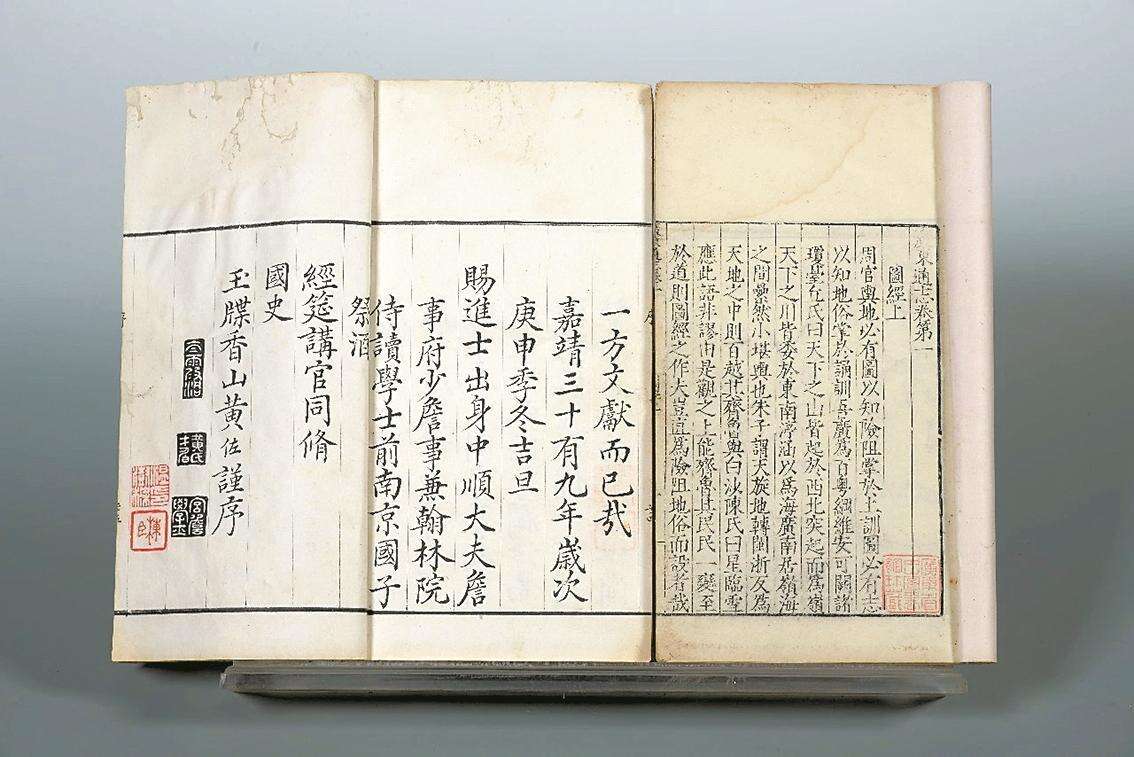 廣東通志卷第一
圖經上
周官輿地必有圖以知險阻掌於土訓圖必有志
以知地俗掌於誦訓吾廣為百粵綱維安可闕諸
瓊臺丘氏曰天下之山皆起於西北突起而為嶺
天下之川皆委於東南渟涵以為海廣南居嶺海
之間夐然小堪輿也朱子謂天旋地轉閩浙反為
天地之中則百越其齊魯與白沙陳氏曰星臨雪
應此語非謬由是觀之上能齊魯其民民一變至
於道則圖經之作夫豈直為險阻地俗而設者哉
一方文獻而已哉
嘉靖三十有九年歲次
庚申季冬吉旦
賜進士出身中順大夫詹
事府少詹事兼翰林院
侍讀學士前南京國子
祭酒
經筵講官同脩
國史
玉牒香山黃佐謹序
黃氏才伯